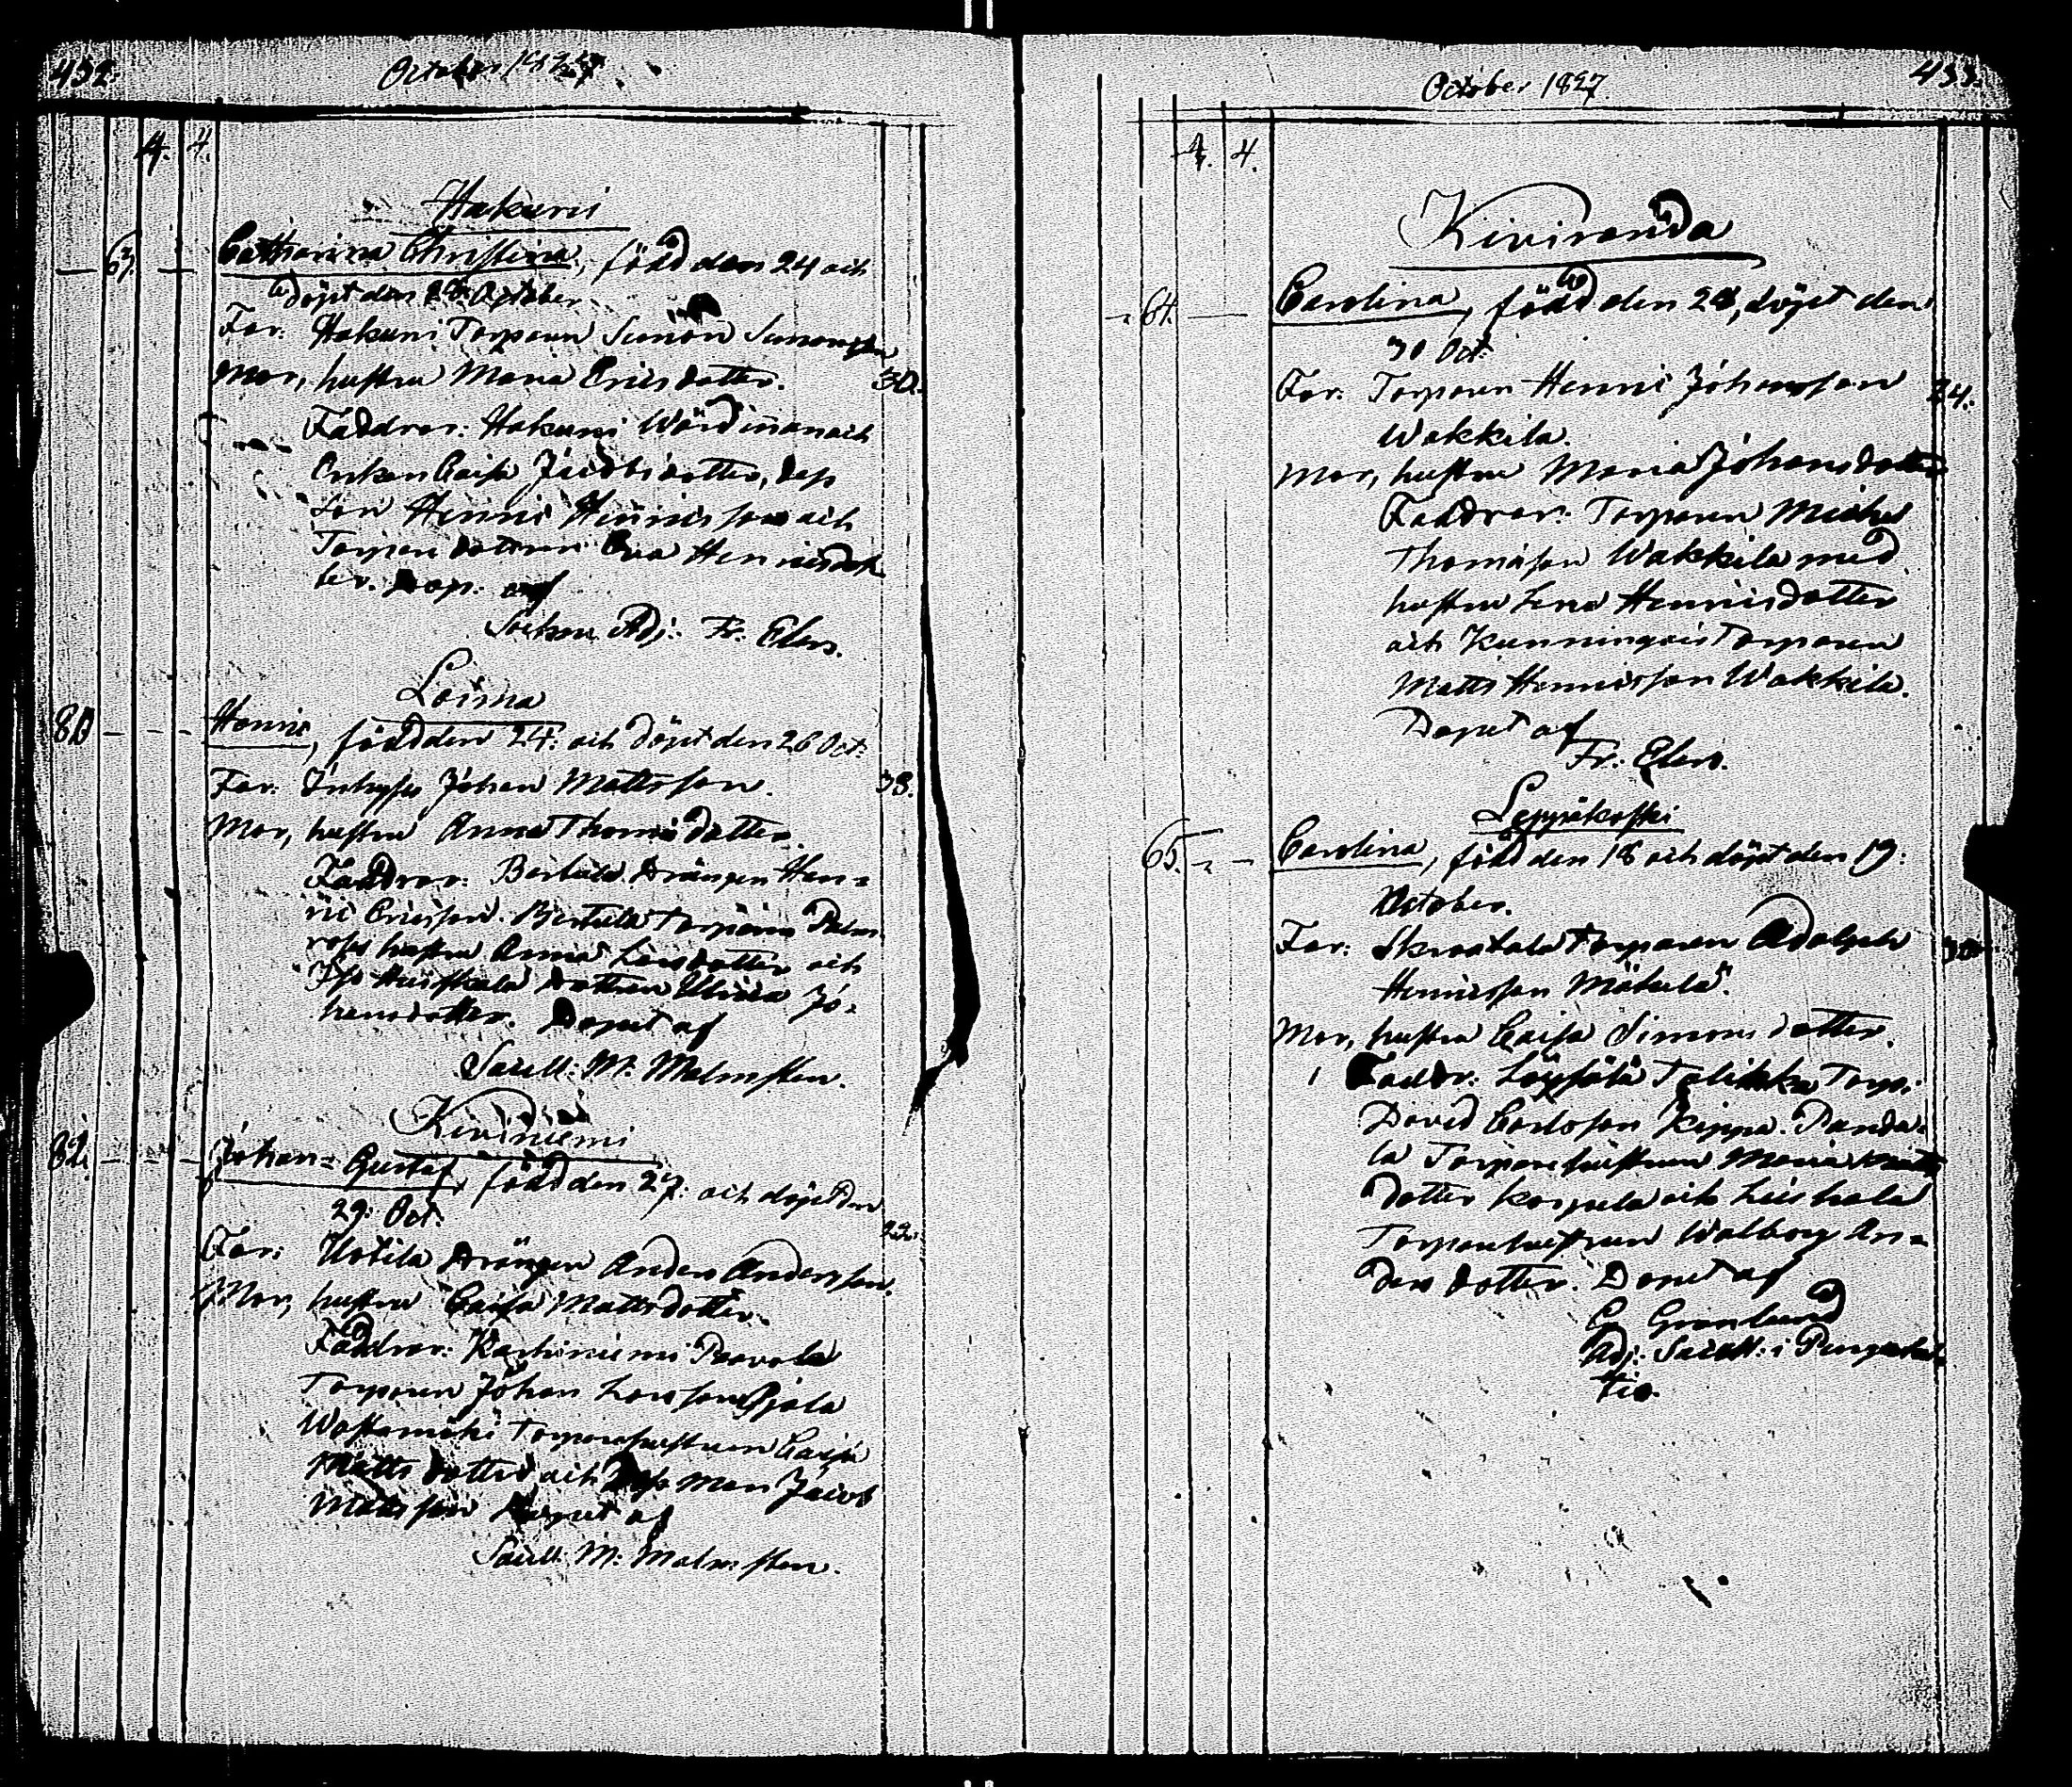 432.
October 1827
4. 4.
Hakuni
63. Catharina Christina, född den 24 och
döpt den October
Far: Hakuni Torparen Simon Simonsson
Mor, hustru Maria Ericsdotter. 30.
Faddrar: Hakuni Wärdinnan och
Enkan Caisa Jacobsdotter, dess
Son Henric Henricsson och
Torpare dottren Eva Henricsdot-
ter. Döp. af
Socken Adj: Fr. Elers.
Loima
80 Henric, född den 24: och döpt den 26 Oct:
Far: Inhyses Johan Mattsson. 38.
Mor, hustru Anna Thomasdotter
Faddrar: Bertula Drängen Hen-
ric Ericsson. Bertula Torparen
hustru Anna Larsdotter och
dottren Ulrica Jo-
hansdotter. Döpet af
Sacell: M. Malmsten.
Kiviniemi
82. Johan Gustaf, född den 27: och döpt den
29: Oct: 22.
Far: Uotila Drängen Anders Andersson.
Mor, hustru Caisa Mattsdotter.
Faddrar: Karhiniemi Paavola
Torparen Johan Larsson
Torparehustrun Caisa
Mattsdotter och Dess man Jacob
Mattsson Döpet af
Sacell. M: Malmsten.
433.
October 1827
4. 4.
Kiviranda
64. Carolina, född den 28, döpt den
30 Oct:
Far: Torparen Henric Johansson 34.
Wakkila.
Mor, hustru Maria Johansdotter
Faddrar: Torparen Michel
Thomasson Wakkila med
hustru Lena Henricsdotter
och Kunningois Torparen
Matts Henricsson Wakkila.
Döpet af
Fr: Elers.
Leppäkoski
65. Carolina, född den 18 och döpt den 19:
October.
Far: Torparen Adolph 30
Henricsson Mäkelä.
Mor, hustru Caisa Simonsdotter.
Faddr: Torp:
David Carlsson Kippa.
la Torparehustrun Maria Matts
dotter Korpela och
Torparehustrun Walborg An-
dersdotter. Döpet af
C Granlund
Adj: Sacell: i